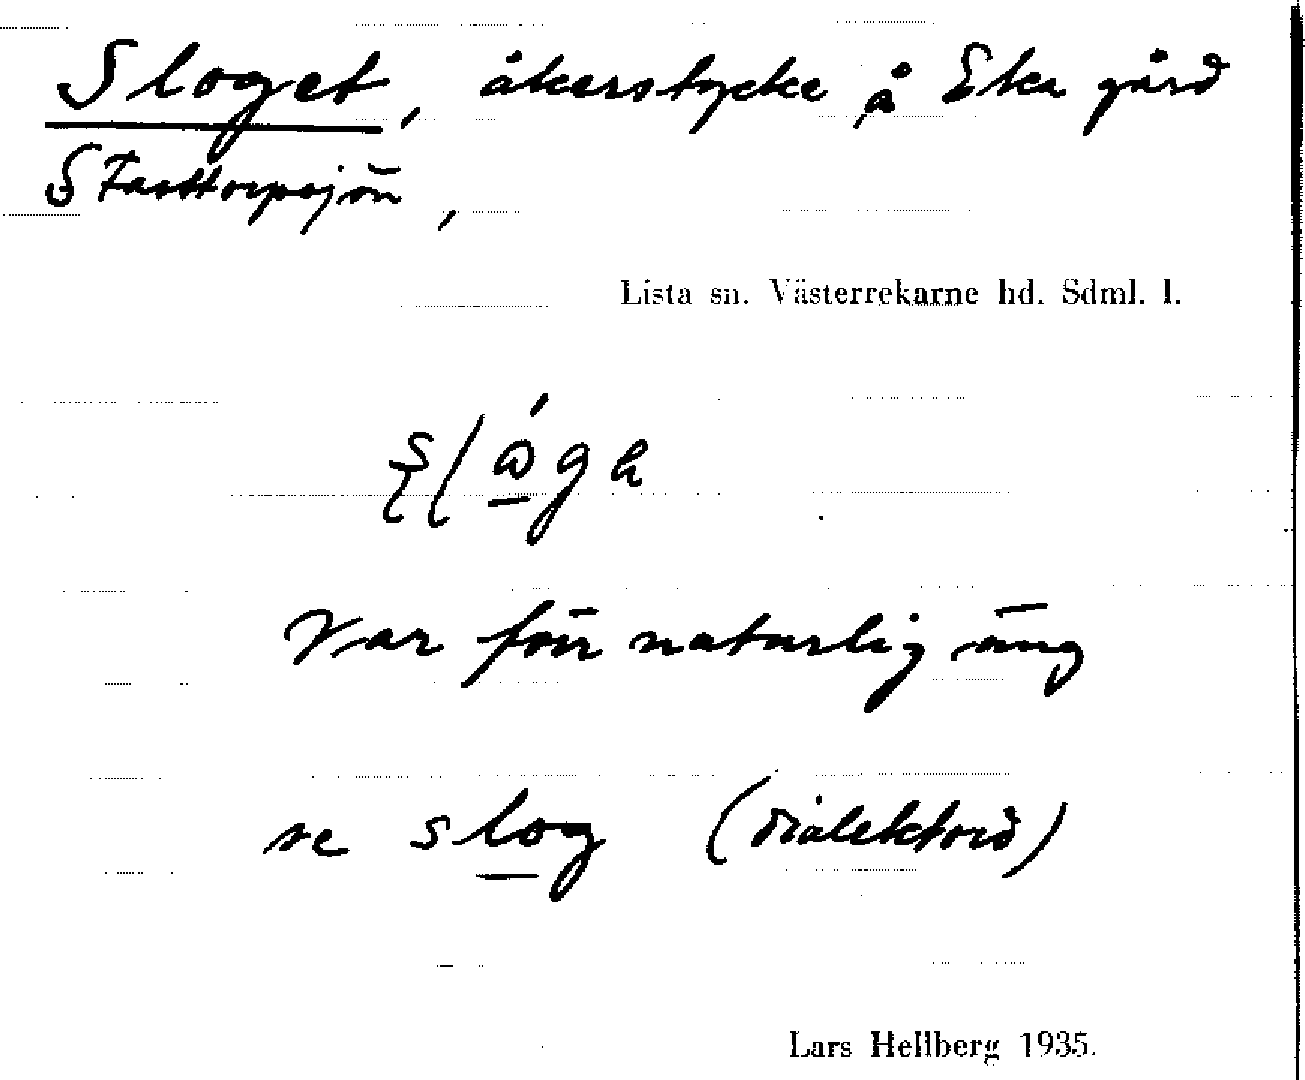 Sloget, åkerstycke å Eka gård
S Fasttorpsjön,
Lista sn. Västerrekarne hd. Sdml. l.
Var förr naturlig äng
se slog (dialektord)
Lars Hellberg 1935.